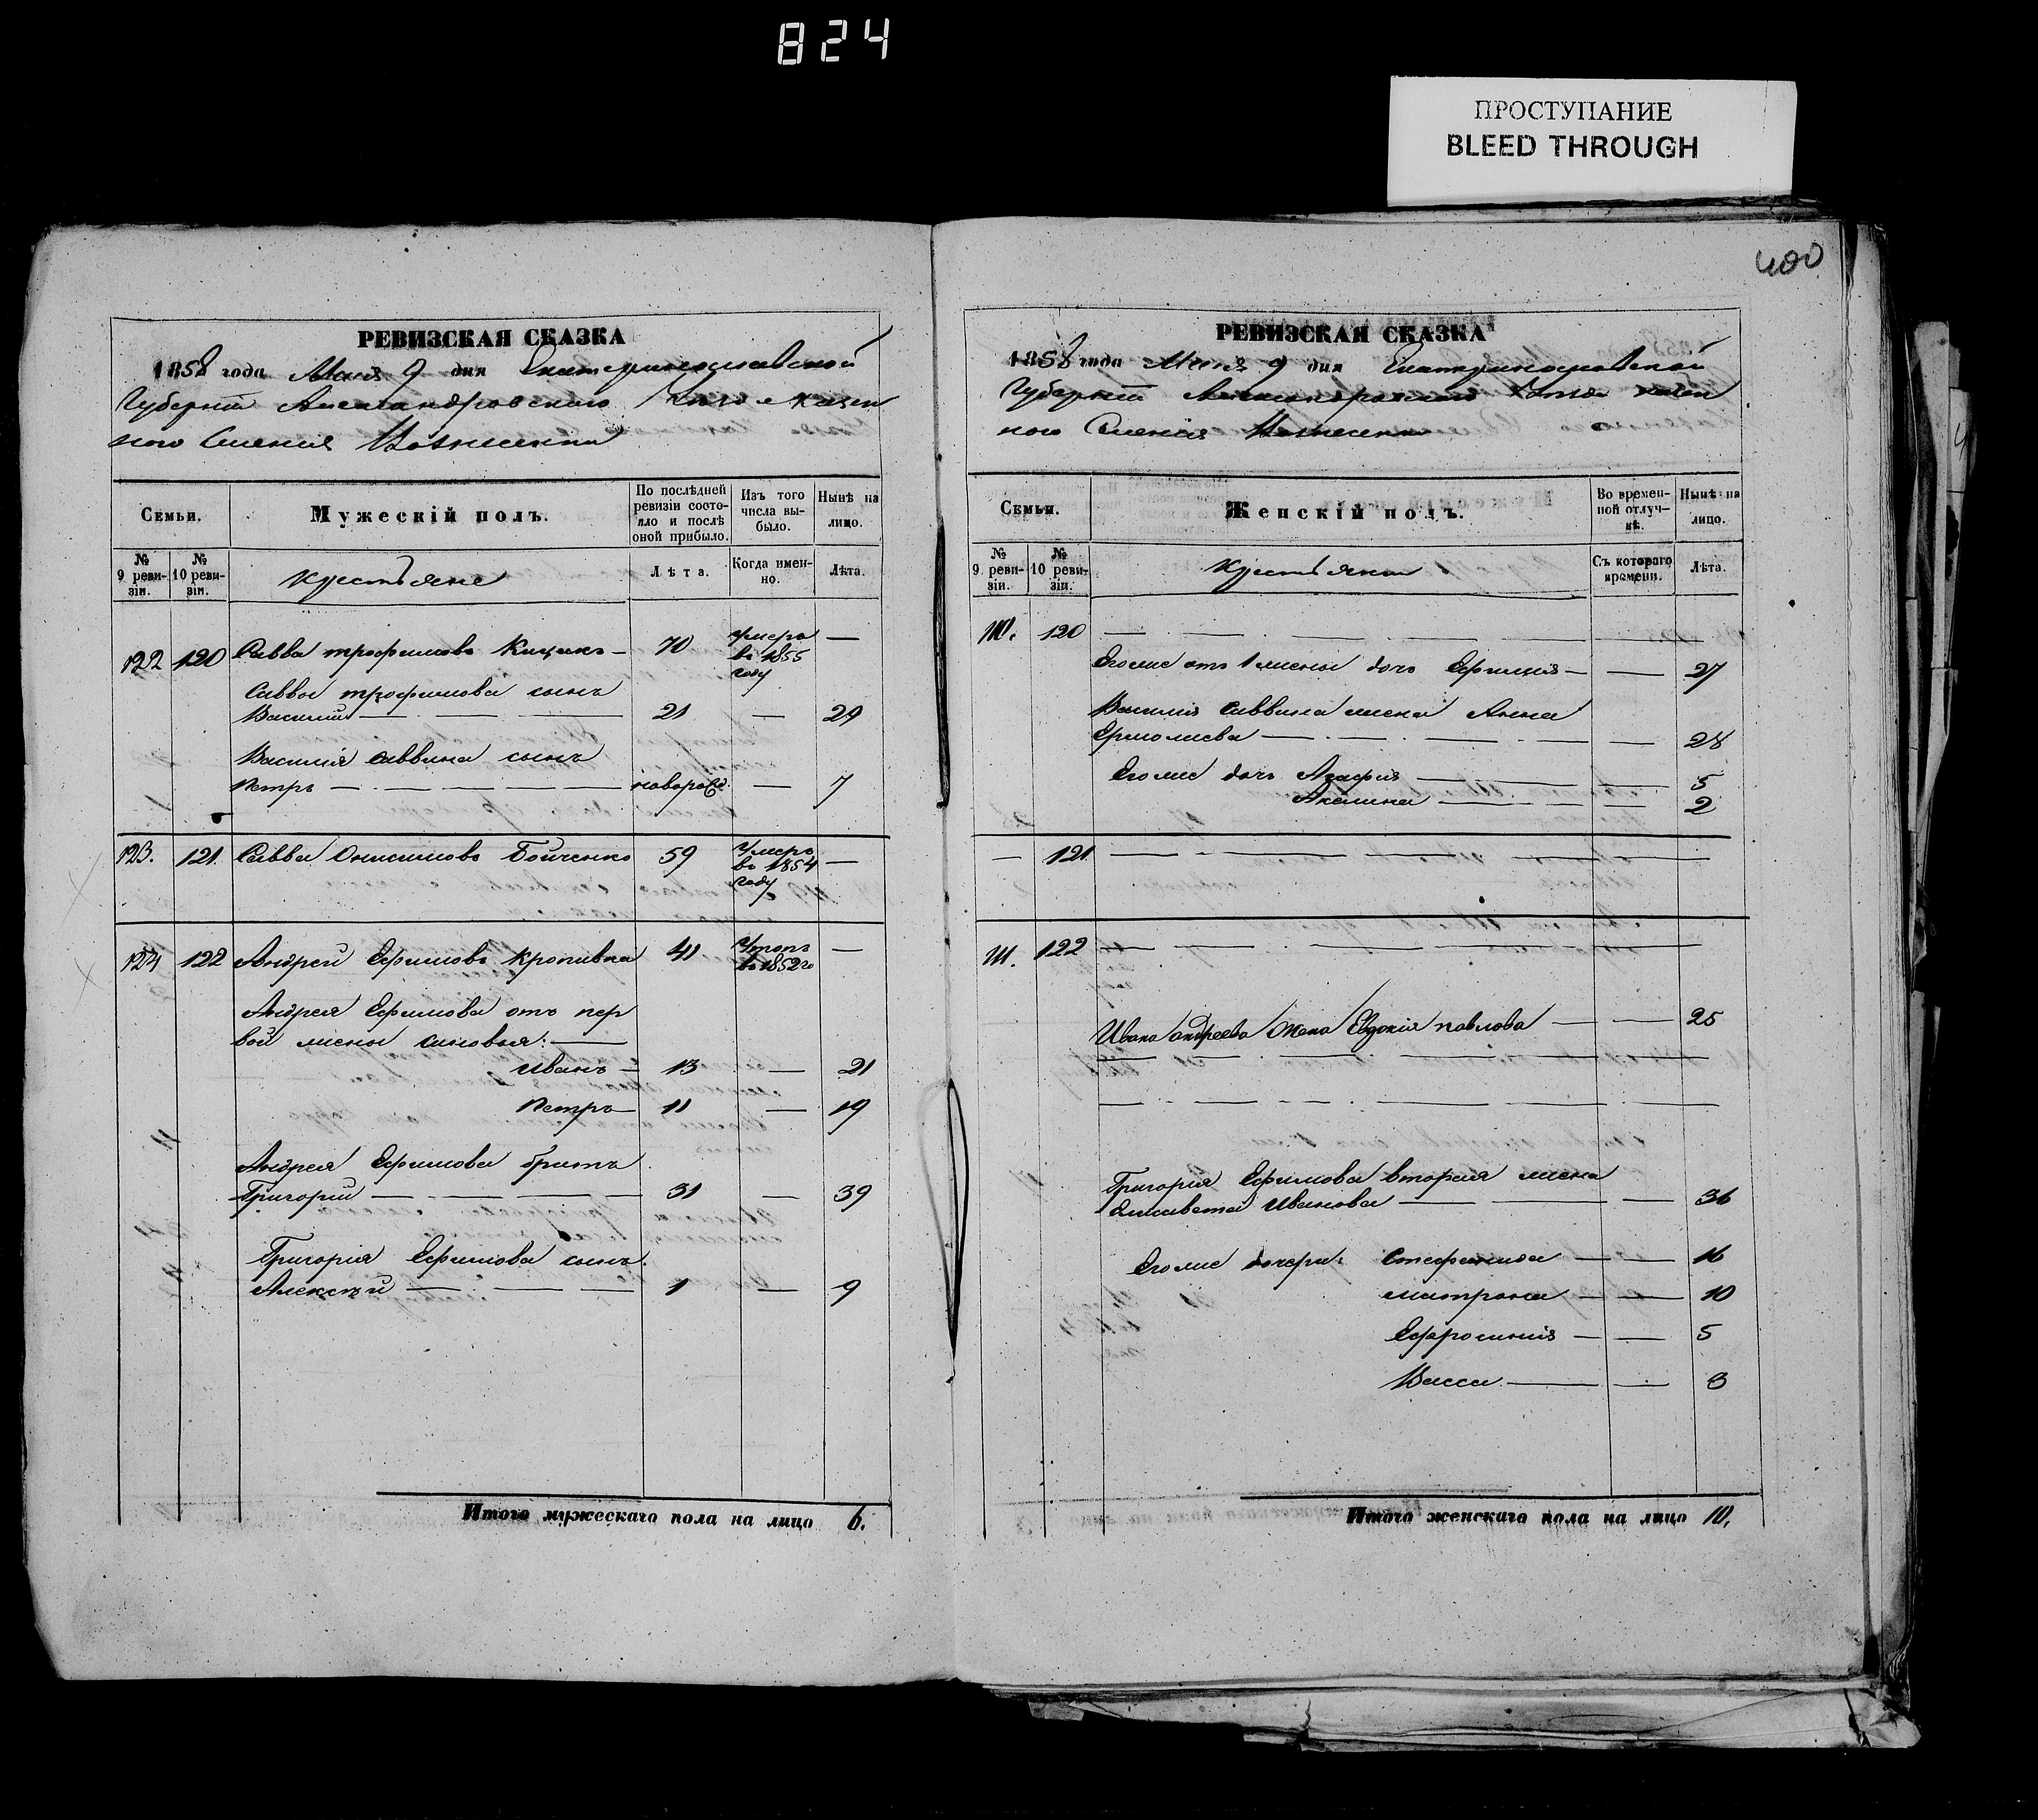 824
ПРОСТУПАНИЕ
BLEED THROUGH
400
РЕВИЗСКАЯ СКАЗКА
1858 года Маія 9 дня Екатеринославской
Губерніи Александровского Уѣзда казен
ного Селенія Вознесенки
Семьи.
Мужескій полъ.
По послѣдней ревизіи состояло и послѣ оной прибыло.
Изъ того числа выбыло.
Нынѣ на лицо.
№ 9 ревизіи.
№ 10 ревизіи.
Крестьяне
Лѣта.
Когда именно.
Лѣта.
122 120 Савва Трофимовъ — 70 умеръ в 1855 году —
Саввы Трофимова сынъ
Василий — 21 — 29
Василія Саввина сынъ
Петръ — новорожд — 7
123. 121. Савва Онисимовъ Бойченко 59 умеръ в 1854 году —
124 122 Андрей Ефимовъ Кропивка 41 в 1852 го —
Андрея Ефимова отъ пер
вой жены сыновья: —
Иванъ — 13 — 21
Петръ — 11 — 19
Андрея Ефимова братъ
Григорий — 31 — 39
Григорія Ефимова сынъ
Алексѣй — 1 — 9
Итого мужескаго пола на лицо 6.
РЕВИЗСКАЯ СКАЗКА
1858 года Маія 9 дня Екатеринославской
Губерніи Александровского Уѣзда казен
ного Селенія Вознесенки
Семьи.
Женскій полъ.
Во временной отлучкѣ.
Нынѣ на лицо.
№ 9 ревизіи.
№ 10 ревизіи.
Крестьянки
Съ котораго времени.
Лѣта.
120 —
Егоже отъ 1 жены дочь — 27
Василія Саввина жена Анна
Ермолаева — 28
Егоже дочь Агафия — 5
Акилина — 2
— 121 —
122 —
Ивана Андреева жена Евдокія Павлова — 25
Григорія Ефимова вторая жена
Елисавета Иванова — 36
Егоже дочери: Стефанида — 16
Матрона — 10
Ефросинія — 5
Васса — 3
Итого женскаго пола на лицо 10.